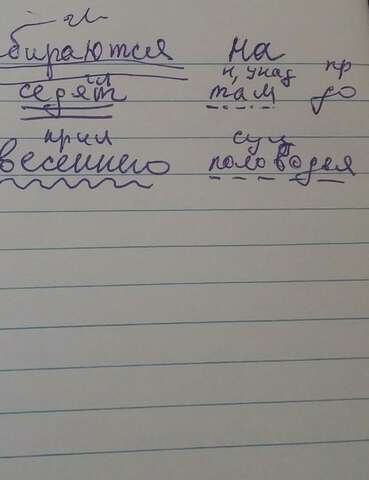 гл
бираются на
гл н, указ пр
седят там до
прил сущ
весеннего половодья